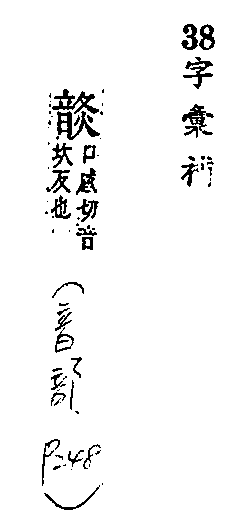 38字彙補
䪦
口感切音
坎灰也
(音部
P.248)